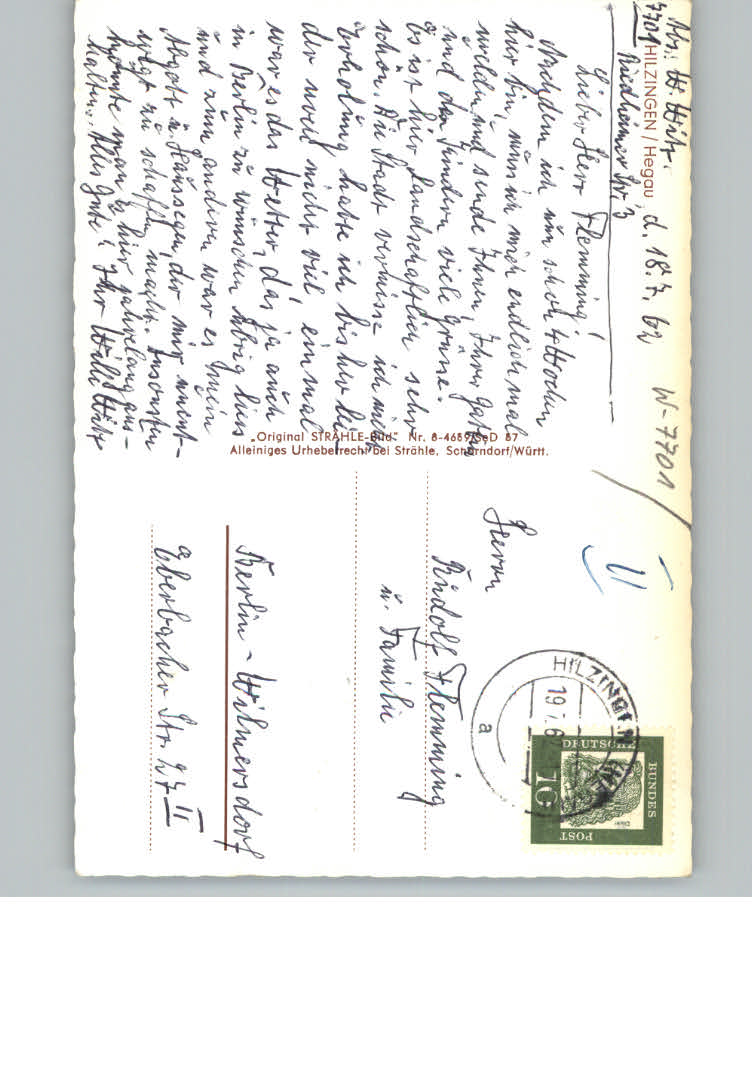 Abs: W. Witz.
7701 HILZINGEN / Hegau d. 18.7.62
Riedheimer Str. 3
W-7701
Lieber Herr Flemming!
Nachdem ich nun schon 4 Wochen
hier bin, muss ich mich endlich mal
melden und sende Ihnen, Ihrer Gattin
und den Kindern viele Grüsse.
Es ist hier landschaftlich sehr
schön. Die Stadt vermisse ich nicht.
Erholung hatte ich bisher lei-
der noch nicht viel, einmal
war es das Wetter, das ja auch
in Berlin zu wünschen übrig liess
und zum anderen war es mein
Abgott u. Haussegen, der mir unent-
wegt zu schaffen macht. Ansonsten
könnte man es hier jahrelang aus-
halten. Alles Gute! Ihr Willi Witz
„Original STRÄHLE-Bild" Nr. 8-4689 SeD 87
Alleiniges Urheberrecht bei Strähle, Schorndorf/Württ.
II
Herrn
Rudolf Flemming
u. Familie
Berlin-Wilmersdorf
Eberbacher Str. 27 II
HILZINGEN
19.7.62
a
DEUTSCHE
BUNDES
POST
10